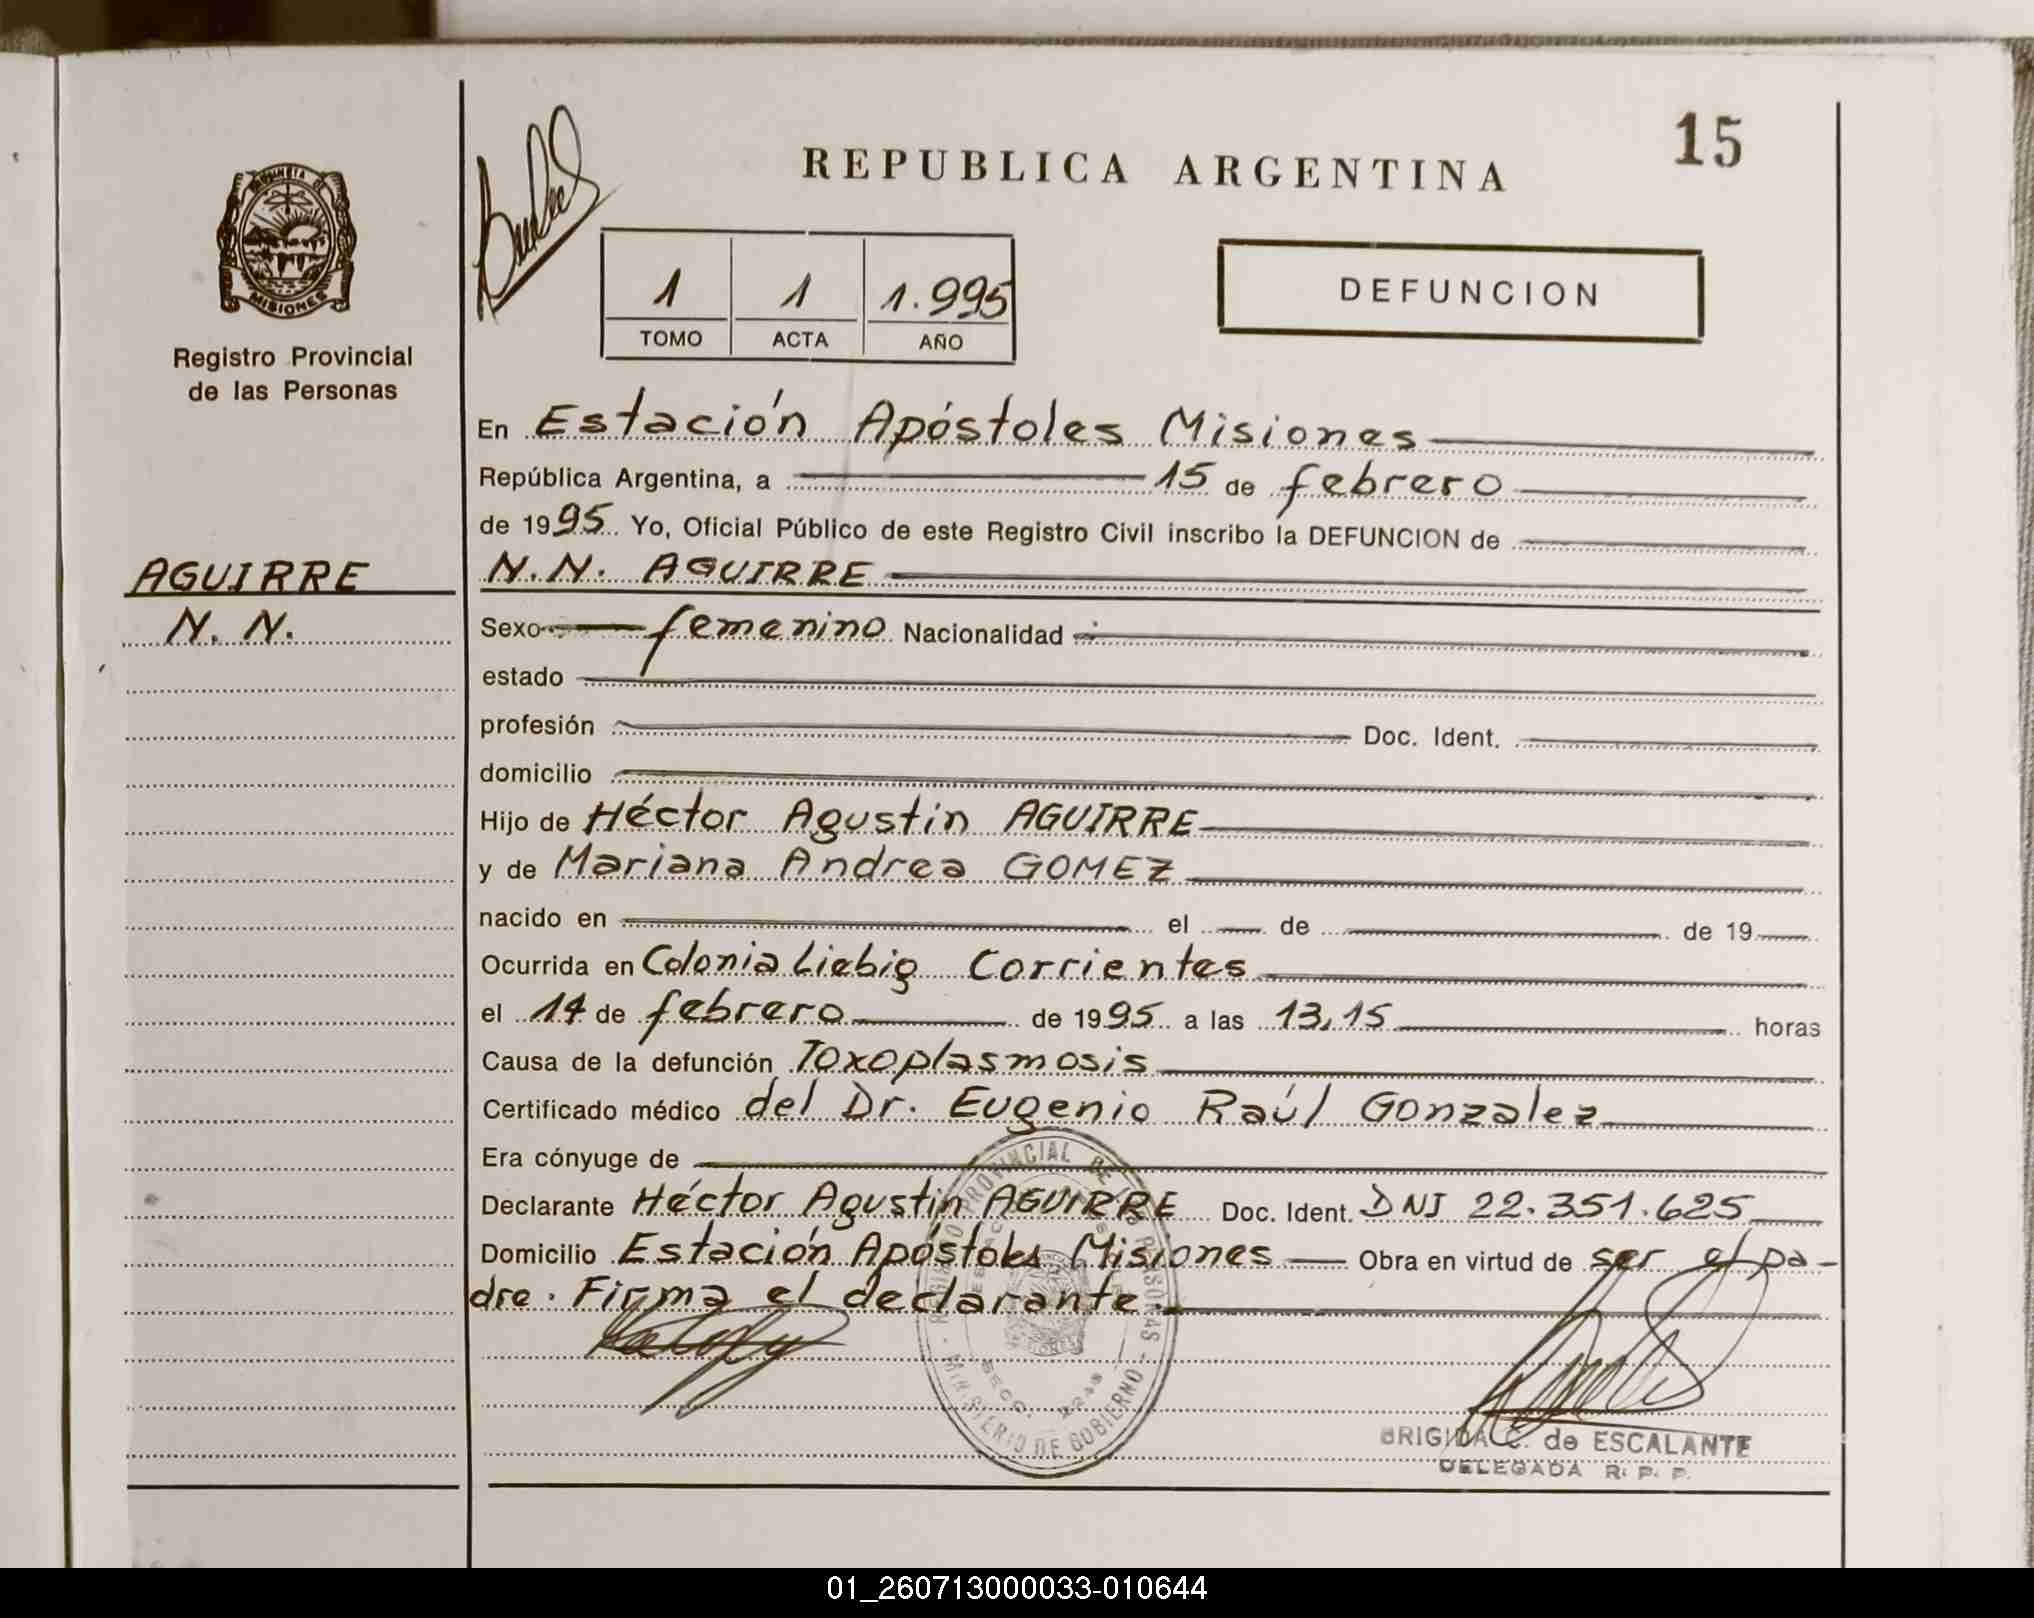 REPUBLICA ARGENTINA
15
PROVINCIA DE
MISIONES
Registro Provincial
de las Personas
1 1 1.995
TOMO ACTA AÑO
DEFUNCION
En Estación Apóstoles Misiones
República Argentina, a 15 de febrero
de 1995 Yo, Oficial Público de este Registro Civil inscribo la DEFUNCION de
AGUIRRE
N. N.
N.N. AGUIRRE
Sexo femenino Nacionalidad
estado
profesión Doc. Ident.
domicilio
Hijo de Héctor Agustin AGUIRRE
y de Mariana Andrea GOMEZ
nacido en el de de 19
Ocurrida en Colonia Liebig Corrientes
el 14 de febrero de 1995 a las 13,15 horas
Causa de la defunción Toxoplasmosis
Certificado médico del Dr. Eugenio Raúl Gonzalez
Era cónyuge de
Declarante Héctor Agustin AGUIRRE Doc. Ident. DNI 22.351.625
Domicilio Estación Apóstoles Misiones Obra en virtud de ser el pa-
dre. Firma el declarante.
REGISTRO PROVINCIAL DE LAS PERSONAS
MINISTERIO DE GOBIERNO
BRIGIDA C. de ESCALANTE
DELEGADA R. P. P.
01_260713000033-010644